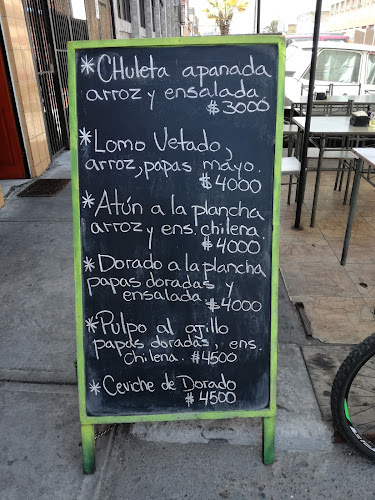 * CHuleta apanada
arroz y ensalada
$3000
* Lomo Vetado,
arroz, papas mayo.
$4000
* Atún a la plancha
arroz y ens. chilena.
$4000
* Dorado a la plancha
papas doradas y
ensalada $4000
* Pulpo al ajillo
papas doradas, ens.
Chilena. $4500
* Ceviche de Dorado
$4500